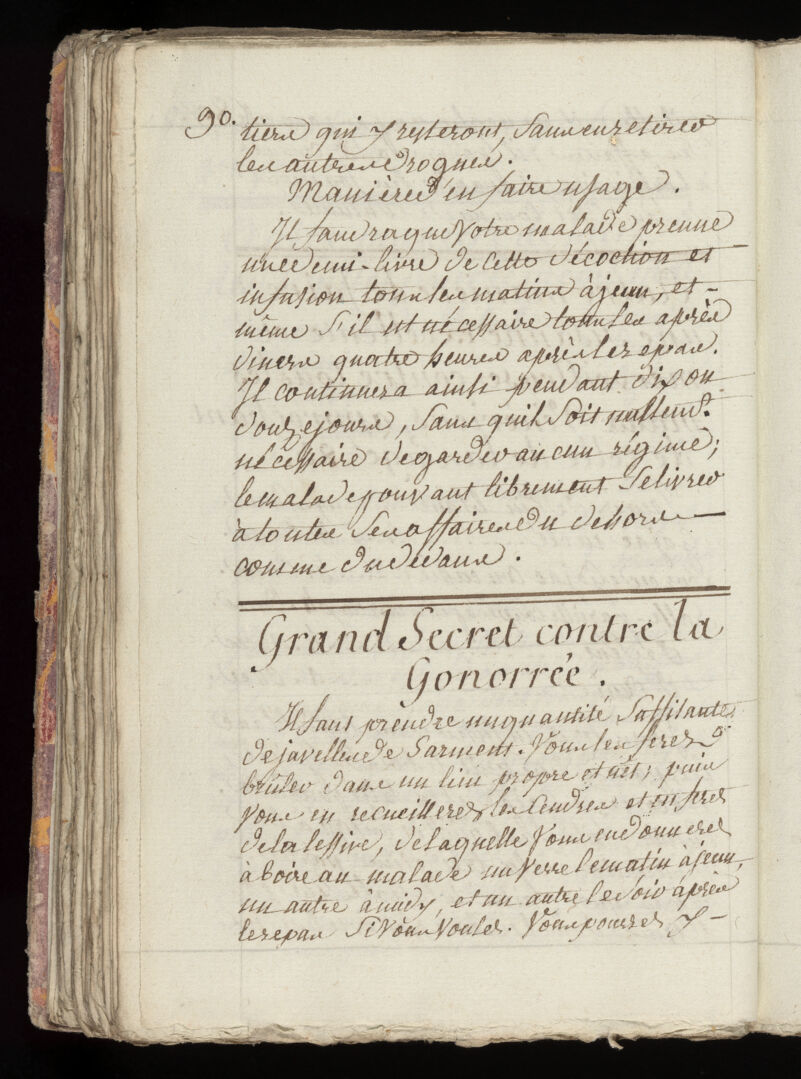 90.
tiers qui y resteront, sans en retirer
les autres drogues.
Manière d'en faire usage.
Il faudra que votre malade prenne
une demi-livre de cette décoction et
infusion tous les matins à jeun, et -
même s'il est nécessaire tous les après
diners quatre heures après le repas.
Il continuera ainsi pendant dix ou
douze jours, sans quil soit nullemt.
nécessaire de garder aucun régime;
le malade pouvant librement se livrer
à toutes ses affaires du dehors —
comme du dedans.
Grand Secret contre la
Gonorrée.
Il faut prendre un quantité suffisante
de javelles de Sarment. Vous les ferez
brûler dans un lieu propre et net; puis
vous en recueillerez les Cendres et en ferez
de la lessive, de laquelle vous en donnerez
à boire au malade un verre le matin à jeun,
un autre à midy, et un autre le soir après
le repas si vous voulez. Vous pourrez y -